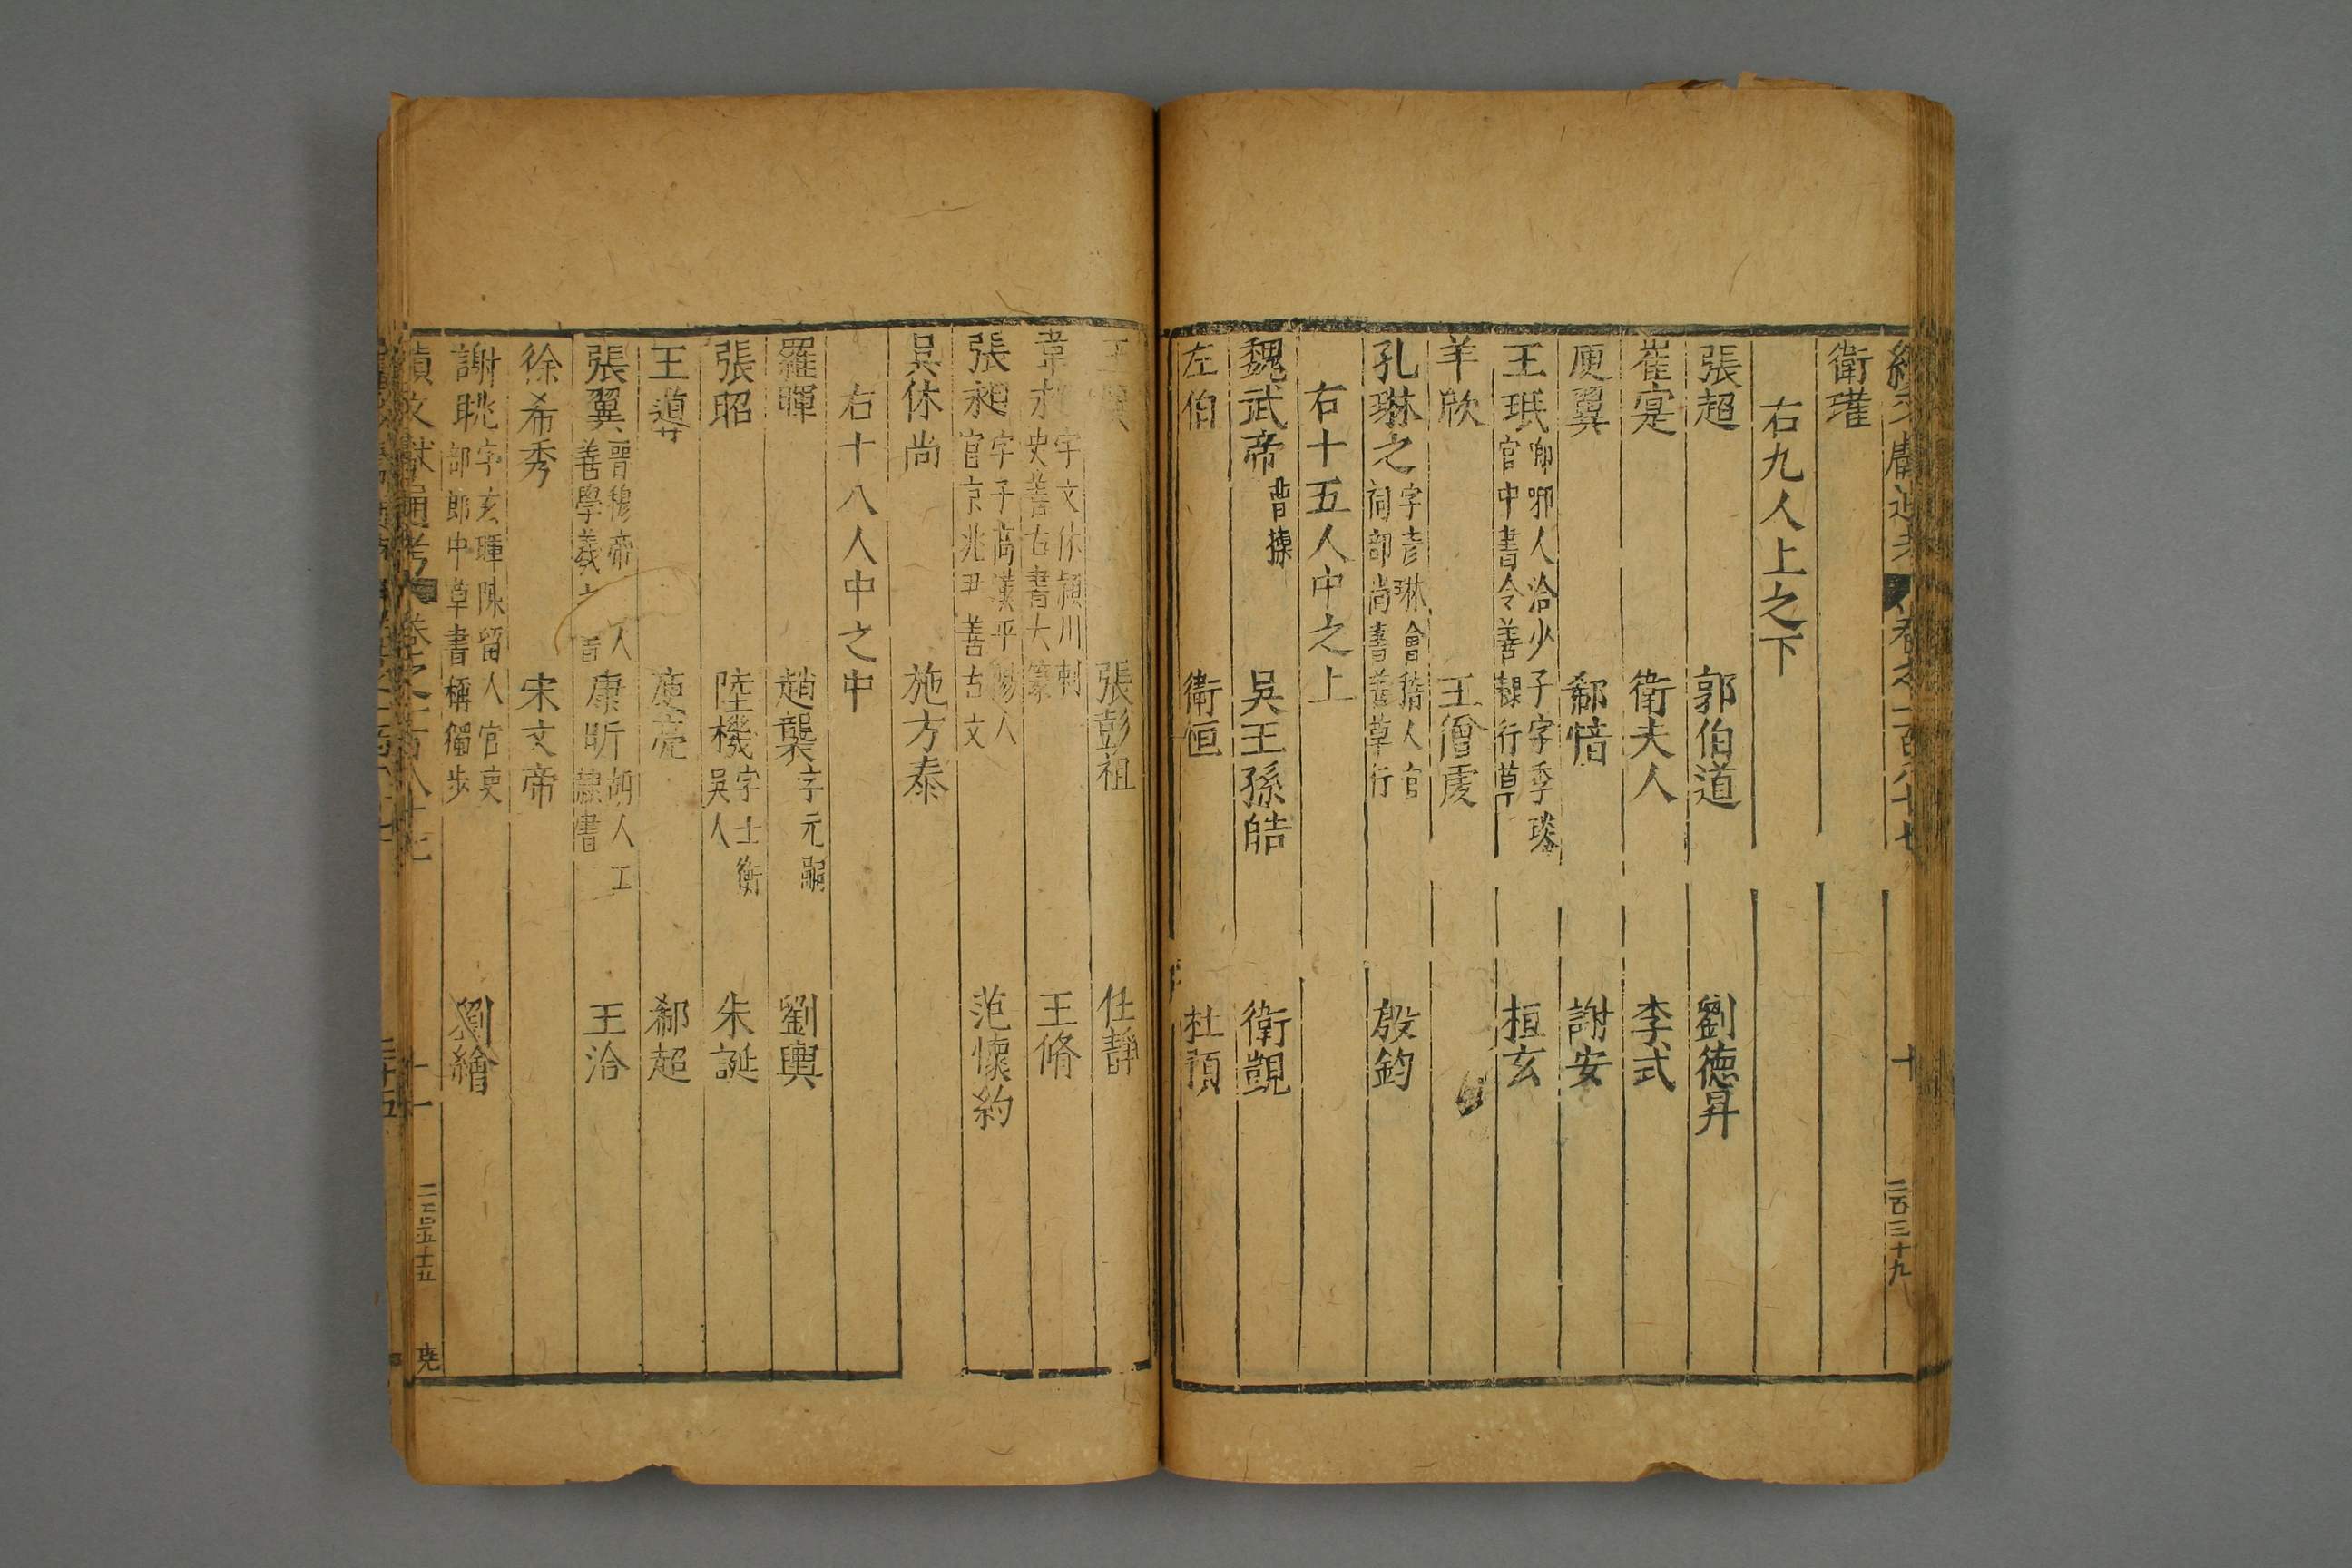 續文獻通考 卷之一百八十七 十 二百三十九
衛瓘
右九人上之下
張超 郭伯道 劉德昇
崔寔 衛夫人 李式
庾翼 郗愔 謝安
王珉 瑯琊人洽少子字季琰 官中書令善隸行草 桓玄
羊欣 王僧虔
孔琳之 字彥琳會稽人官 祠部尚書善草行 殷鈞
右十五人中之上
魏武帝 曹操 吳王孫皓 衛覬
左伯 衛恒 杜預
張彭祖 任靜
韋昶 字文休潁川刺 史善古書大篆 王脩
張昶 字子高漢平陽人 官京兆尹善古文 范懷約
吳休尚 施方泰
右十八人中之中
羅暉 趙襲 字元嗣 劉輿
張昭 陸機 字士衡 吳人 朱誕
王導 庾亮 郗超
張翼 晉穆帝 人 善學羲 康昕 胡人工 隸書 王洽
徐希秀 宋文帝
謝朓 字玄暉陳留人官吏 部郎中草書稱獨步 劉繪
續文獻通考 卷之一百八十七 十一